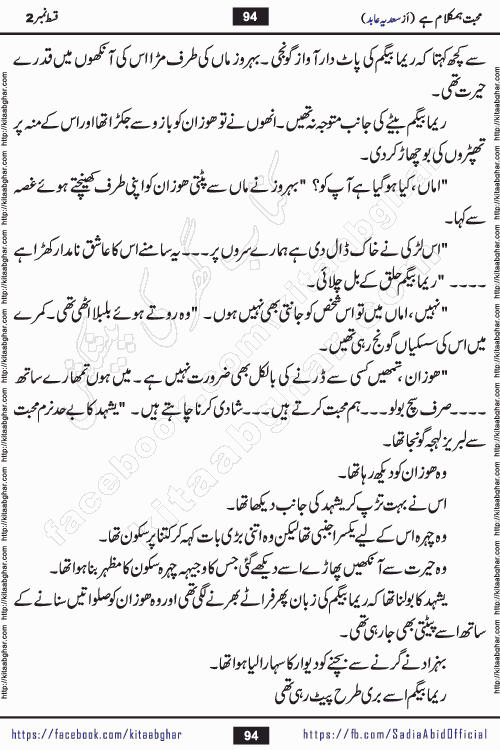 محبت ہمکلام ہے (از سعدیہ عابد) 94 قسط نمبر 2
سے کچھ کہتا کہ ریما بیگم کی پاٹ دار آواز گونجی۔ بہروز ماں کی طرف مڑا اس کی آنکھوں میں قدرے
حیرت تھی۔
ریما بیگم بیٹے کی جانب متوجہ نہ تھیں۔ انھوں نے تو ھوزان کو بازو سے جکڑا تھا اور اس کے منہ پر
تھپڑوں کی بوچھاڑ کر دی۔
"اماں، کیا ہو گیا ہے آپ کو؟" بہروز نے ماں سے پٹتی ھوزان کو اپنی طرف کھینچتے ہوئے غصہ
سے کہا۔
"اس لڑکی نے خاک ڈال دی ہے ہمارے سروں پر۔۔۔ یہ سامنے اس کا عاشق نامدار کھڑا ہے
۔۔۔۔" ریما بیگم حلق کے بل چلائی۔
"نہیں، اماں میں تو اس شخص کو جانتی بھی نہیں ہوں۔" وہ روتے ہوئے بلبلا اٹھی تھی۔ کمرے
میں اس کی سسکیاں گونج رہی تھیں۔
"ھوزان، تمھیں کسی سے ڈرنے کی بالکل بھی ضرورت نہیں ہے۔ میں ہوں تمھارے ساتھ
۔۔۔۔ صرف سچ بولو۔۔۔۔ ہم محبت کرتے ہیں۔۔۔ شادی کرنا چاہتے ہیں۔" یشہد کا بے حد نرم محبت
سے لبریز لہجہ گونجا تھا۔
وہ ھوزان کو دیکھ رہا تھا۔
اس نے بہت تڑپ کر یشہد کی جانب دیکھا تھا۔
وہ چہرہ اس کے لیے یکسر اجنبی تھا لیکن وہ اتنی بڑی بات کہہ کر کتنا پر سکون تھا۔
وہ حیرت سے آنکھیں پھاڑے اسے دیکھے گئی جس کا وجیہہ چہرہ سکون کا مظہر بنا ہوا تھا۔
یشہد کا بولنا تھا کہ ریما بیگم کی زبان پھر فراٹے بھرنے لگی تھی اور وہ ھوزان کو صلواتیں سنانے کے
ساتھ اسے پیٹتی بھی جا رہی تھی۔
بہزاد نے گرنے سے بچنے کو دیوار کا سہارا لیا ہوا تھا۔
ریما بیگم اسے بری طرح پیٹ رہی تھی
https://facebook.com/kitaabghar 94 https://fb.com/SadiaAbidOfficial
http://kitaabghar.com http://kitaabghar.com http://kitaabghar.com http://kitaabghar.com http://kitaabghar.com http://kitaabghar.com http://kitaabghar.com http://kitaabghar.com
http://kitaabghar.com http://kitaabghar.com http://kitaabghar.com http://kitaabghar.com http://kitaabghar.com http://kitaabghar.com http://kitaabghar.com http://kitaabghar.com
کتاب گھر کی پیشکش
kitaabghar.com
facebook.com/kitaabghar